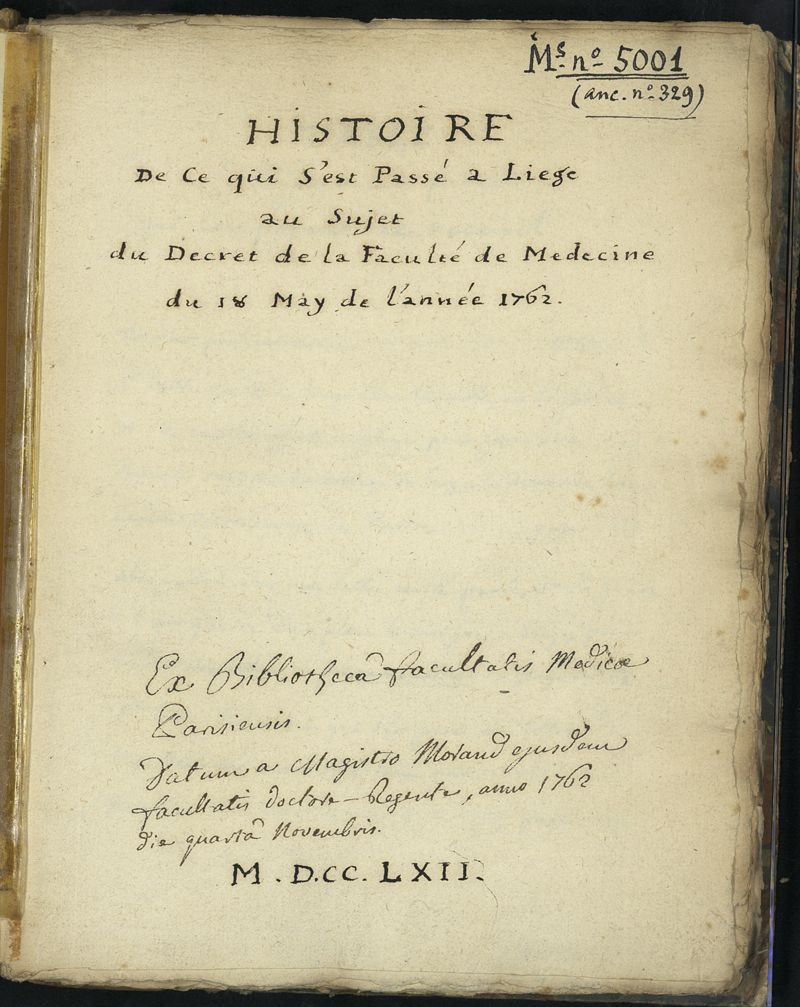 Ms. no. 5001
(anc. no. 329)
HISTOIRE
De Ce qui S'est Passé a Liege
au Sujet
du Decret de la Faculté de Medecine
du 18 May de l'année 1762.
Ex Bibliothecâ facultatis Medicæ
Parisiensis.
Datum a Magistro Morand ejusdem
facultatis doctore-Regente, anno 1762
die quartâ Novembris.
M.D.CC.LXII.